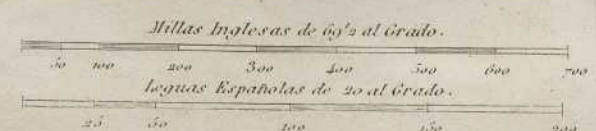 Millas Inglesas de 69½ al Grado.
50 100 200 300 400 500 600 700
Leguas Españolas de 20 al Grado.
25 50 100 150 200